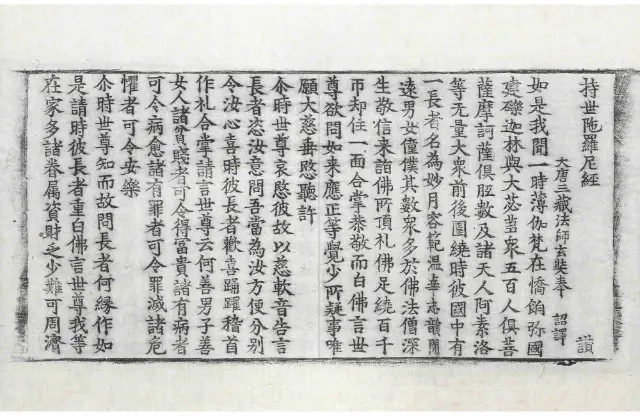 持世陁羅尼經 讚
大唐三藏法師玄奘奉 詔譯
如是我聞一時薄伽梵在憍餉弥國
建磔迦林與大苾芻衆五百人俱菩
薩摩訶薩俱胝數及諸天人阿素洛
等无量大衆前後圍繞時彼國中有
一長者名為妙月容範温華志韻閑
遠男女僮僕其數衆多於佛法僧深
生敬信来詣佛所頂礼佛足繞百千
帀却住一面合掌恭敬而白佛言世
尊欲問如来應正等覺少所疑事唯
願大慈垂愍聽許
尒時世尊哀愍彼故以慈軟音告言
長者恣汝意問吾當為汝方便分别
令汝心喜時彼長者歡喜踊躍稽首
作礼合掌請言世尊云何善男子善
女人諸貧賤者可令得冨貴諸有病者
可令病愈諸有罪者可令罪滅諸危
懼者可令安樂
尒時世尊知而故問長者何縁作如
是請時彼長者重白佛言世尊我等
在家多諸眷属資財乏少難可周濟